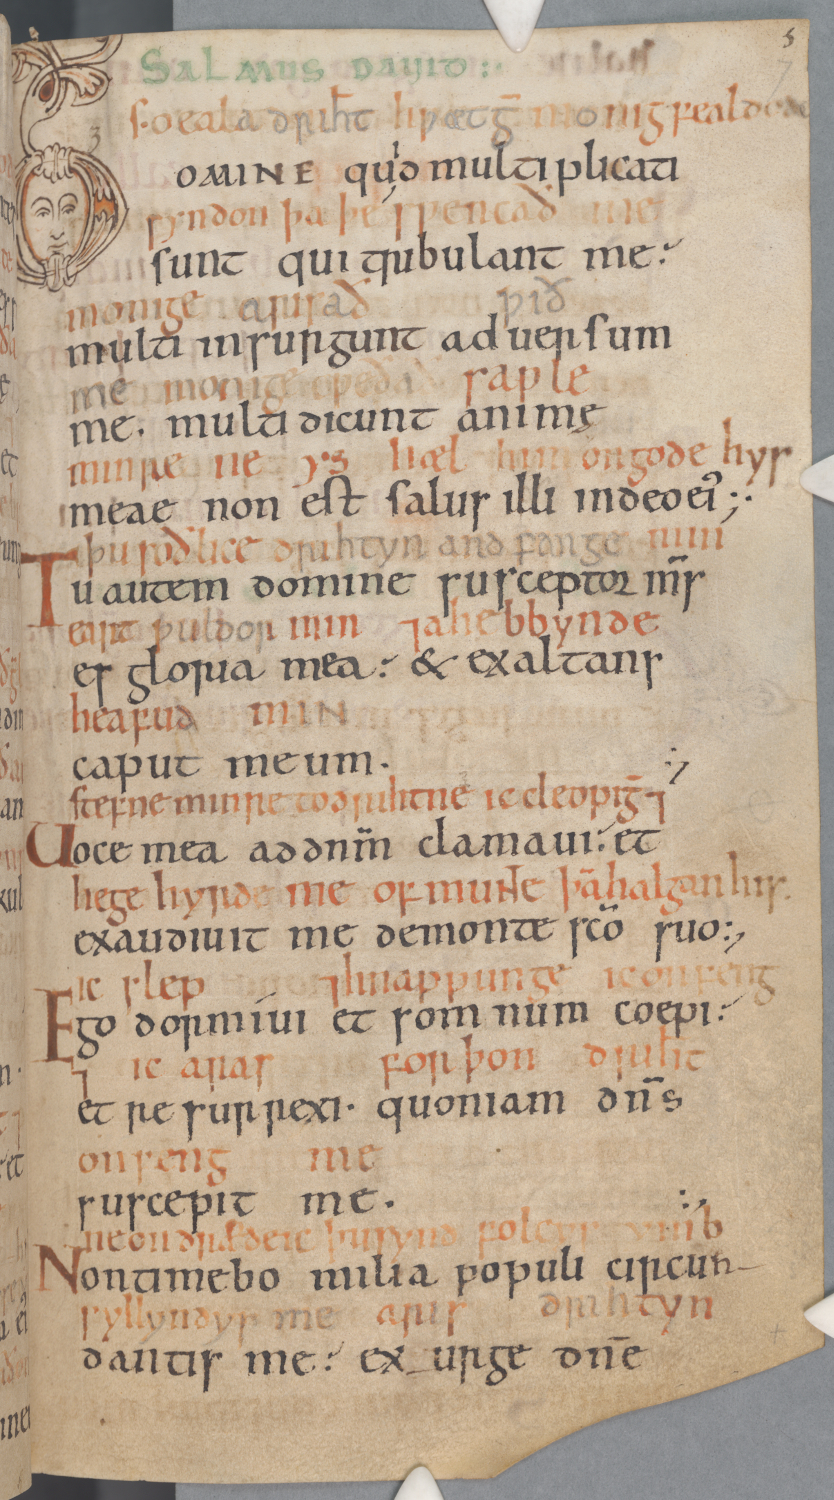 5
SALMUS DAUID:
OMINE quid multiplicati
syndon þa þe
sunt qui tribulant me:
monige arisað wið
multi insurgunt aduersum
me monige saple
me. multi dicunt animę
minre ne ys hæl him on gode hys
meae non est salus illi in deo ei';·
þu soðlice drihtyn andfange min
Tu autem domine susceptor m̅s
eart wuldor min ⁊ ahebbynde
es gloria mea: & exaltans
heafud min
caput meum.
stefne minre to drihtne ic cleopig̅ ⁊
Uoce mea ad dnm̅ clamaui: et
he gehyrde me of munte þa̅ halgan hys.
exaudiuit me de monte sc̅o suo:,
ic slep ⁊ hnappunge ic onfeng
Ego dormiui et somnum coepi:
⁊ ic aras forþon drih̅t
et resurrexi. quoniam dn̅s
onfeng me
suscepit me.
ne ondræde ic þusynd folc ymb
Non timebo milia populi circun
syllyndys me aris drihtyn
dantis me: exurge dn̅e